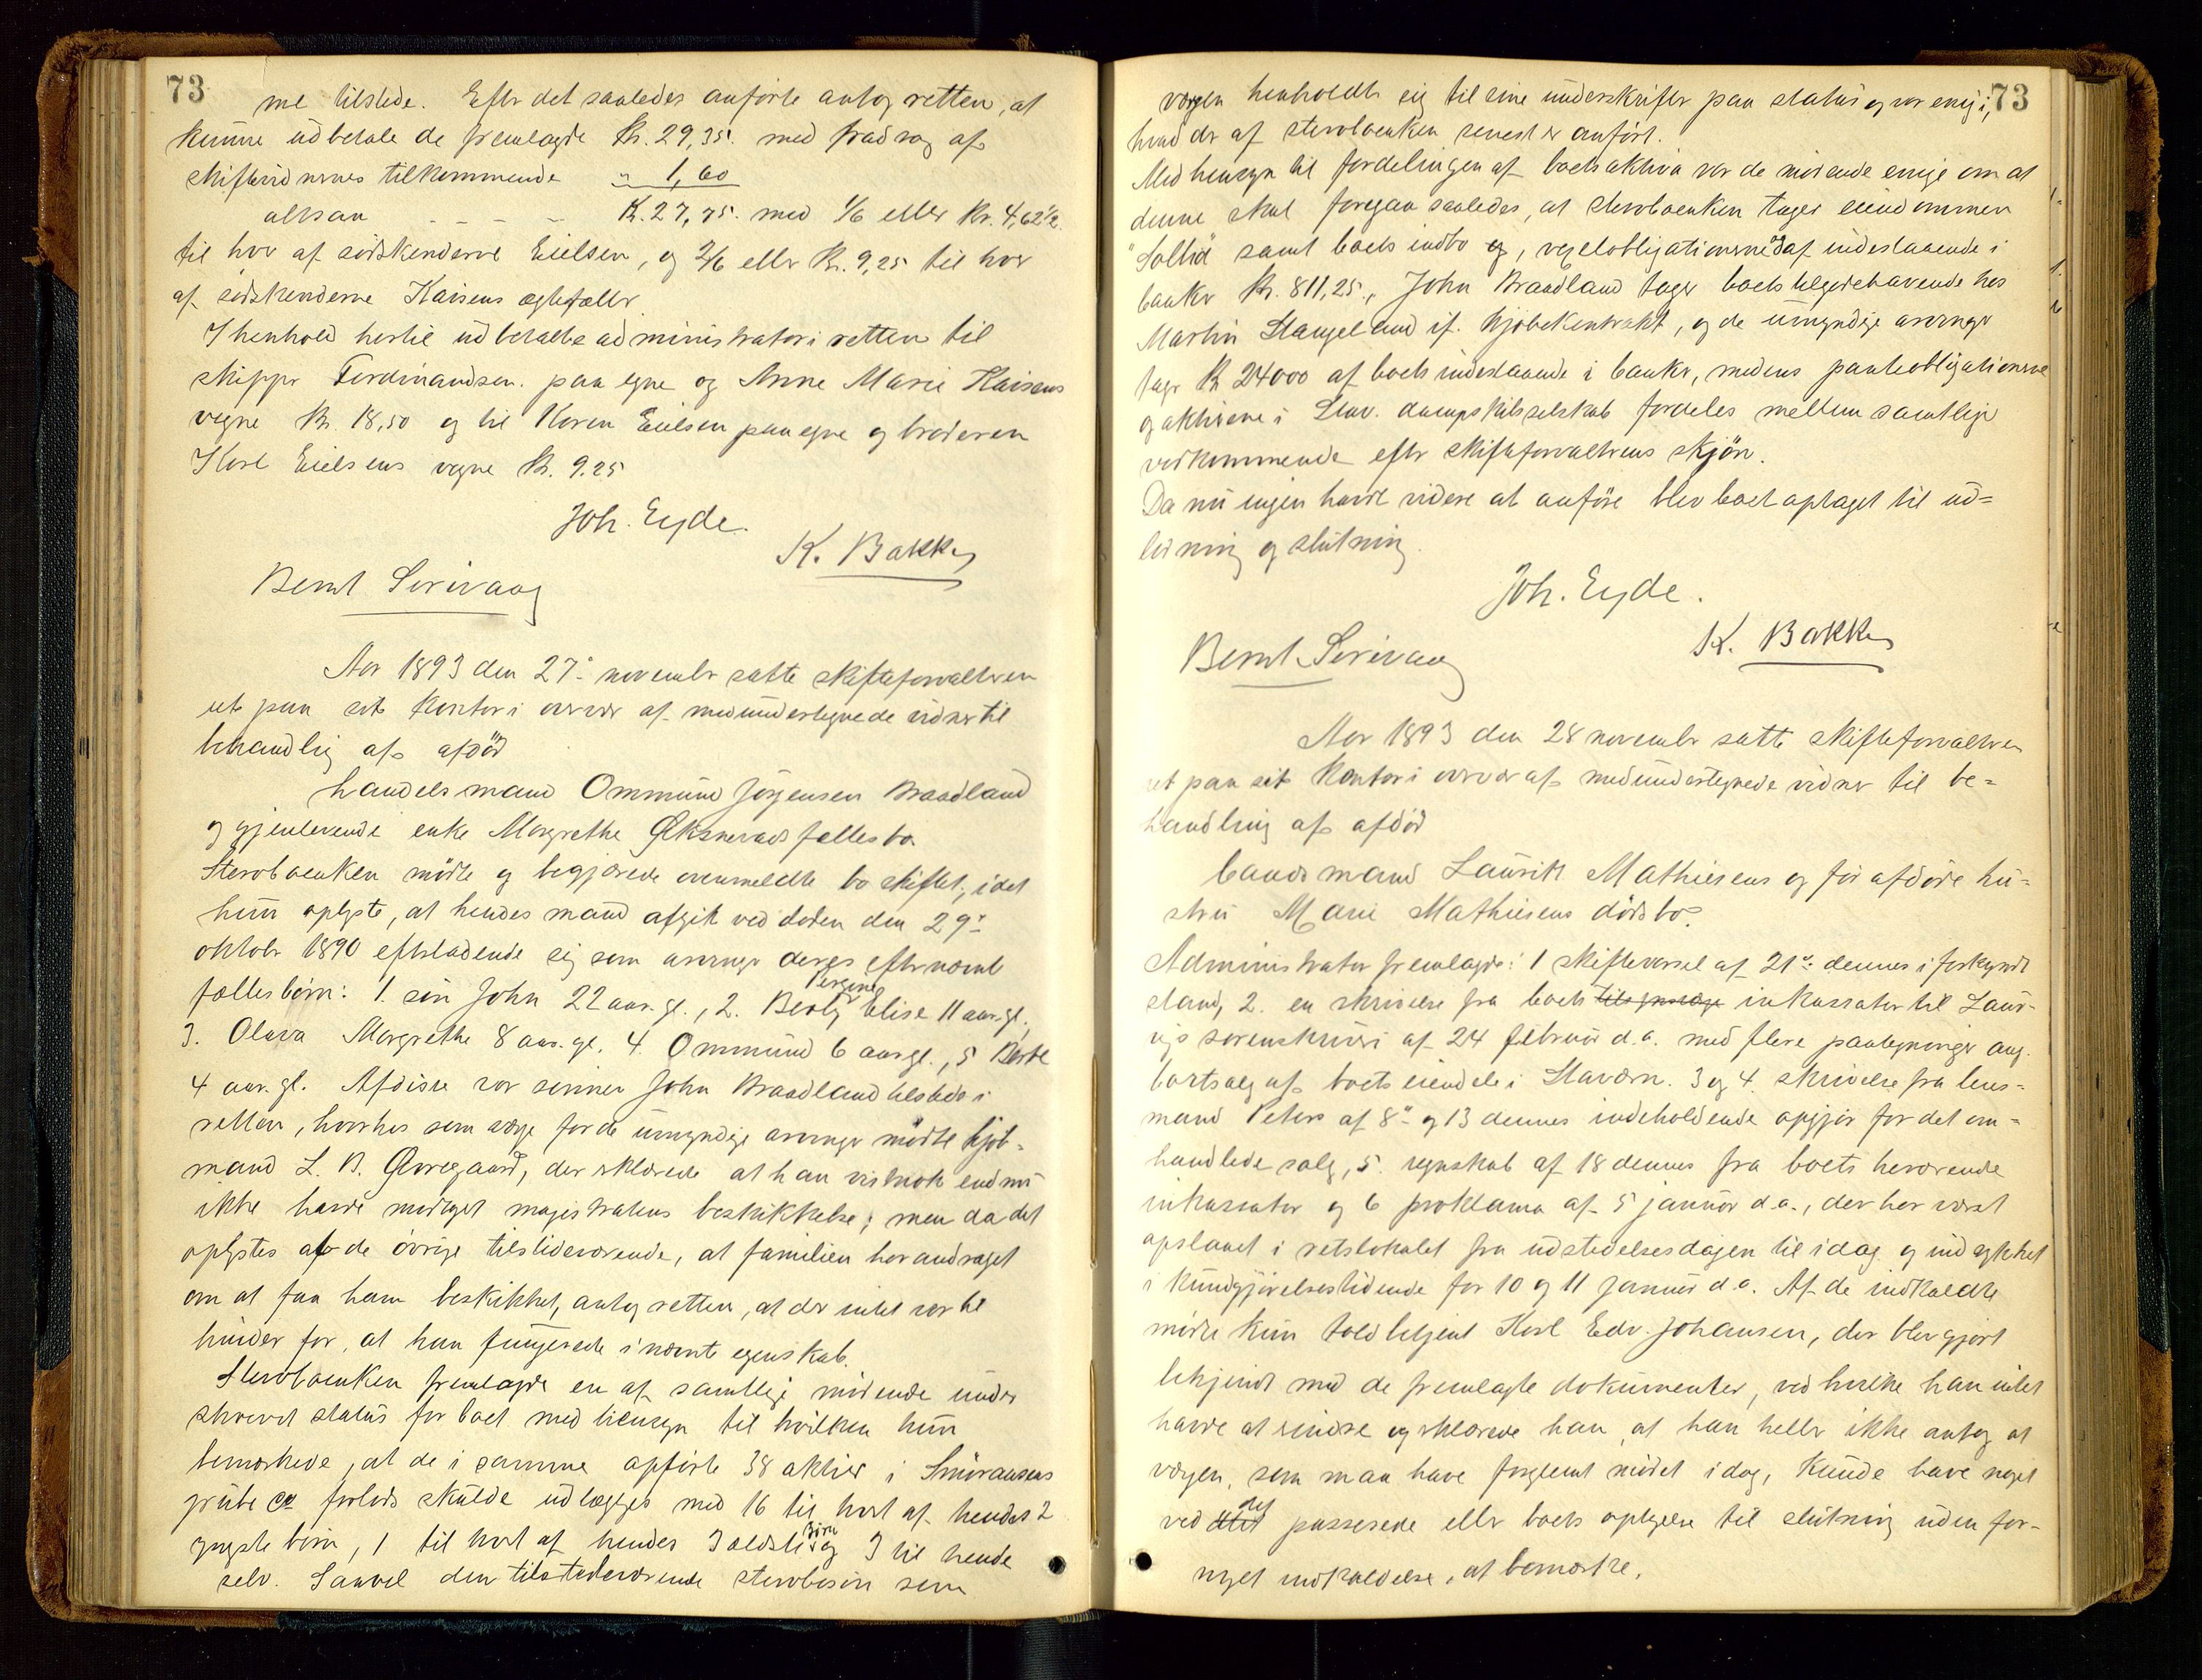 73
me tilstede. Efter det saaledes anførte antog retten, at
kunne udbetale de fremlagte Kr. 29,35. med fradrag af
skiftevidnernes tilkommende " 1,60
altsaa - - - - Kr. 27,75. med 1/6 eller Kr. 4,62 1/2.
til hver af sødskenderne Eielsen, og 2/6 eller Kr. 9,25 til hver
af sødskenderne Kaisens ægtefæller.
I henhold hertil udbetalte administrator i retten til
skipper Ferdinandsen paa egne og Anne Marie Kaisens
vegne Kr. 18,50 og til Karen Eielsen paa egne og broderen
Karl Eielsens vegne Kr. 9.25
Joh. Eyde.
K. Bakke
Bernt Sørvaag
Aar 1893 den 27de november satte skifteforvalteren
ret paa sit kontor i overvær af medundertegnede vidner til
behandlig af afdød
handelsmand Ommund Jørgensen Braadland
og gjenlevende enke Margrethe Øksnevads fællesbo
Stervboenken mødte og begjærede ovenmeldte bo skiftet, idet
hun oplyste, at hendes mand afgik ved døden den 29de
oktober 1890 efterladende sig som arvinger deres efternævnte
fællesbørn: 1. søn John 22 aar. gl., 2. Berty Pergine Elise 11 aar. gl.,
3. Olava Margrethe 8 aar. gl. 4. Ommund 6 aar gl., 5 Berte
4 aar. gl. Af disse var sønnen John Braadland tilstede i
retten, hvorhos som værge for de umyndige arvinger mødte kjøb-
mand L. B. Øvregaard, der erklærede at han vistnok endnu
ikke havde modtaget magistratens beskikkelse; men da det
oplystes af de øvrige tilstedeværende, at familien har andraget
om at faa ham beskikket, antog retten, at der intet var til
hinder for, at han fungerede i nævnte egenskab.
Stervboenken fremlagde en af samtlige mødende under
skrevet status for boet med hensyn til hvilken hun
bemærkede, at de i samme opførte 38 aktier i
grube Co forlods skulde udlægges med 16 til hvert af hendes 2
yngste børn, 1 til hvert af hendes 3 ældste Børn og 3 til hende
selv. Saavel den tilstedeværende stervbosøn som
73
værgen henholdt sig til sine underskrifter paa status og var enig i,
hvad der af stervboenken senest er anført.
Med hensyn til fordelingen af boets aktiva var de mødende enige om at
denne skal foregaa saaledes, at stervboenken tager eiendommen
"Sollid" samt boets indbo og, vexelobligationerne og af indestaaende i
banker Kr. 811,25, John Braadland tager boets tilgodehavende hos
Martin Stangeland if. kjøbekontrakt, og de umyndige arvinger
tager Kr 24000 af boets indestaaende i banker, medens panteobligationerne
og aktierne i Stav. dampskibsselskab fordeles mellem samtlige
vedkommende efter skifteforvalterens skjøn.
Da nu ingen havde videre at anføre blev boet optaget til ud=
lodning og slutning.
Joh. Eyde.
K. Bakke
Bernt Sørvaag
Aar 1893 den 28 november satte skifteforvalteren
ret paa sit kontor i overvær af medundertegnede vidner til be=
handling af afdød
baandmand Lauritz Mathiesens og før afdøde hu=
stru Marie Mathiesens dødsbo.
Administrator fremlagde: 1 skiftevarsel af 21de dennes i forkyndt
stand, 2. en skrivelse fra boets inkassator til Laur-
vigs sorenskriveri af 24 februar d.a. med flere paategninger ang.
bortsalg af boets eiendele i Stavern. 3 og 4. skrivelse fra lens=
mand Peters af 8de og 13 dennes indeholdende opgjør for det om=
handlede salg, 5. regnskab af 18 dennes fra boets herværende
inkassator og 6 proklama af 5 januar d.a., der har været
opslaaet i retslokalet fra udstedelsesdagen til idag og indrykket
i kundgjørelsestidende for 10 og 11 januar d.a. Af de indkaldte
mødte kun toldbetjent Karl Edv. Johansen, der blev gjort
bekjendt med de fremlagte dokumenter, ved hvilke han intet
havde at erindre og erklærede han, at han heller ikke antog at
værgen, som maa have forglemt mødet idag, kunde have noget
ved det passerede eller boets optagelse til slutning uden for-
nyet indkaldelse, at bemærke.